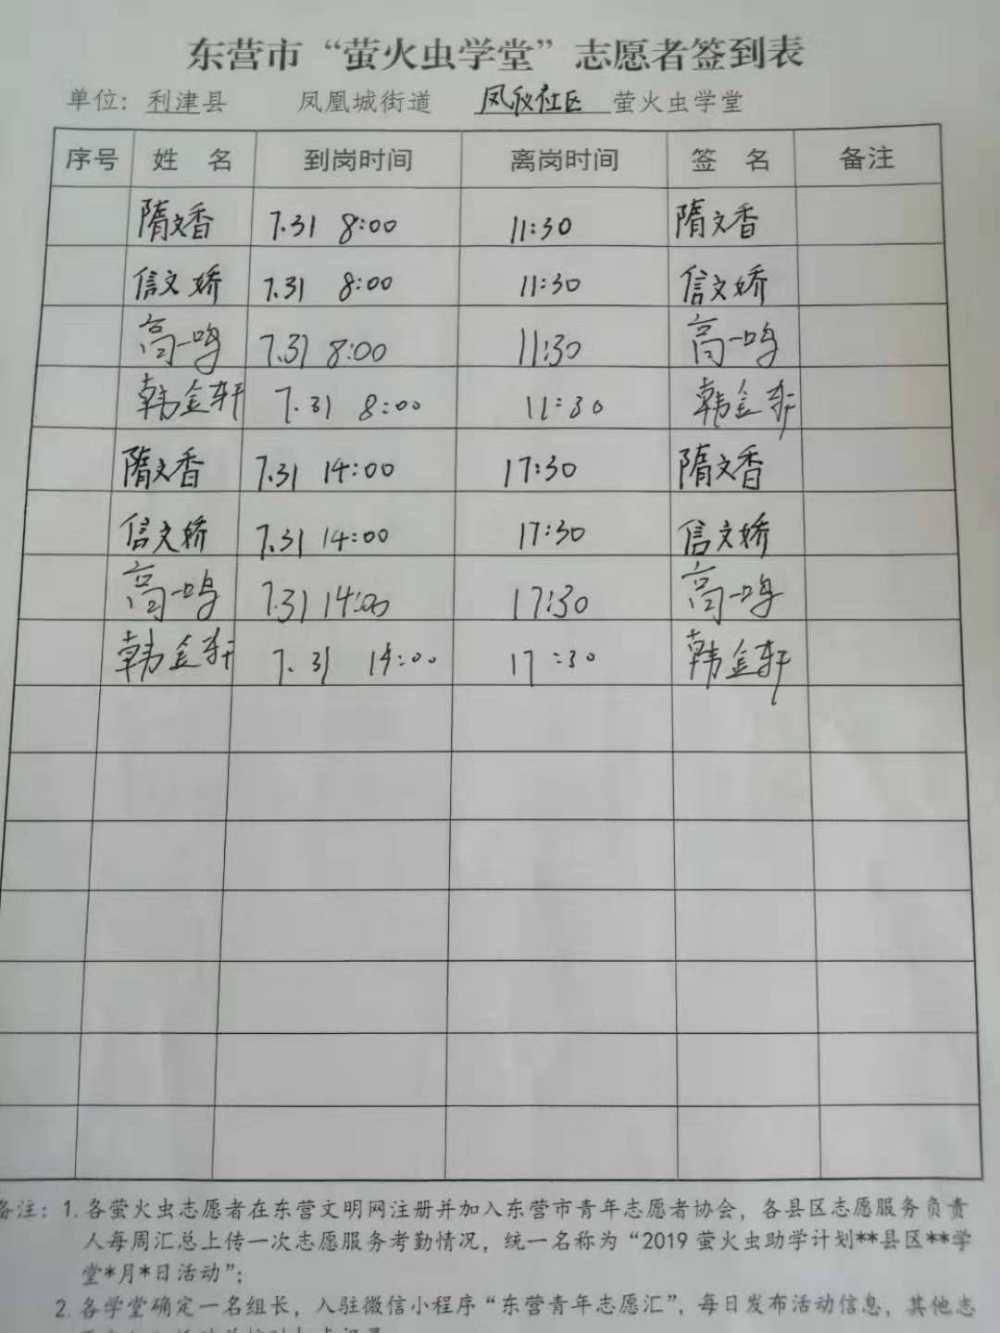 东营市“萤火虫学堂”志愿者签到表
单位：利津县 凤凰城街道 凤仪社区 萤火虫学堂
序号 姓 名 到岗时间 离岗时间 签 名 备注
隋文香 7.31 8:00 11:30 隋文香
信文娇 7.31 8:00 11:30 信文娇
高一鸣 7.31 8:00 11:30 高一鸣
韩金轩 7.31 8:00 11:30 韩金轩
隋文香 7.31 14:00 17:30 隋文香
信文娇 7.31 14:00 17:30 信文娇
高一鸣 7.31 14:00 17:30 高一鸣
韩金轩 7.31 14:00 17:30 韩金轩
备注：1. 各萤火虫志愿者在东营文明网注册并加入东营市青年志愿者协会，各县区志愿服务负责
人每周汇总上传一次志愿服务考勤情况，统一名称为“2019 萤火虫助学计划**县区**学
堂*月*日活动”；
2. 各学堂确定一名组长，入驻微信小程序“东营青年志愿汇”，每日发布活动信息，其他志